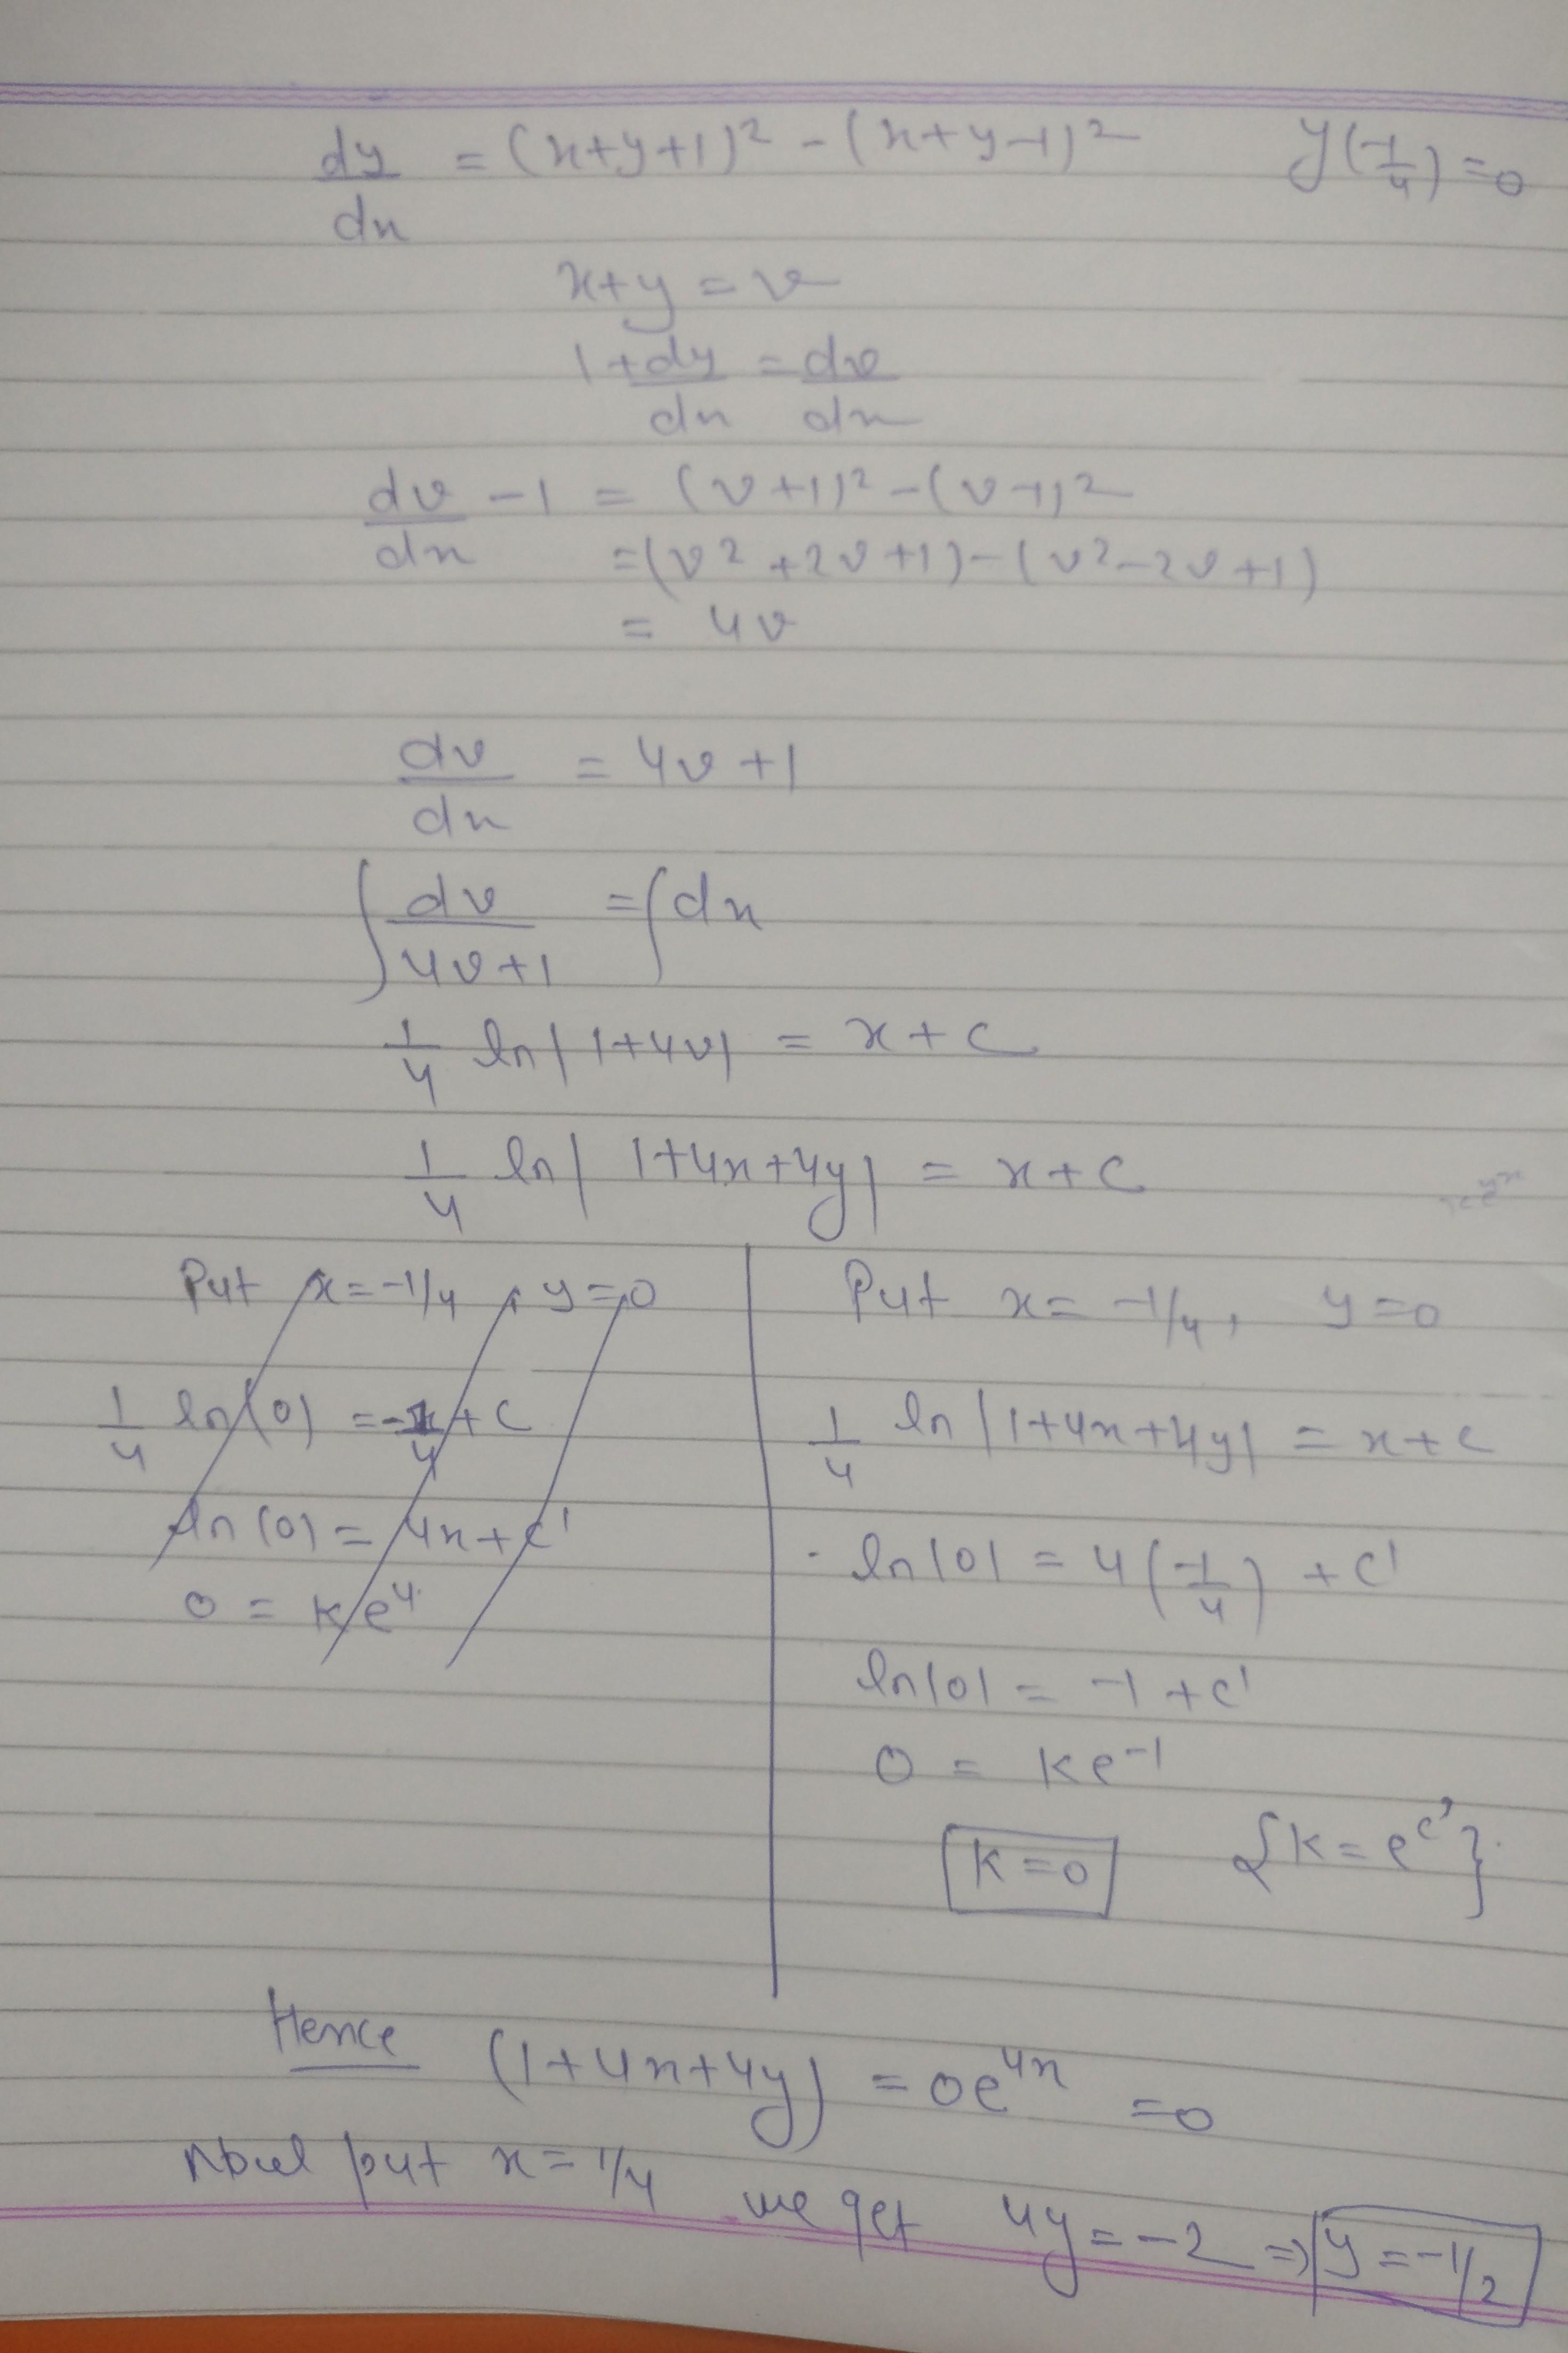 dy/dx = (x+y+1)² - (x+y-1)² y(-1/4) = 0
x+y = v
1 + dy/dx = dv/dx
dv/dx - 1 = (v+1)² - (v-1)²
= (v² + 2v + 1) - (v² - 2v + 1)
= 4v
dv/dx = 4v + 1
∫ dv/4v+1 = ∫ dx
1/4 ln|1+4v| = x + c
1/4 ln|1+4x+4y| = x + c
Put x = -1/4, y = 0
1/4 ln(0) = -1/4 + c
ln(0) = 4x + c'
0 = ke⁴
Put x = -1/4, y = 0
1/4 ln|1+4x+4y| = x + c
ln|0| = 4(-1/4) + c'
ln|0| = -1 + c'
0 = ke⁻¹
k = 0 {k = e^c'}
Hence (1+4x+4y) = 0e^4x = 0
Now put x = 1/4 we get 4y = -2 ⇒ y = -1/2